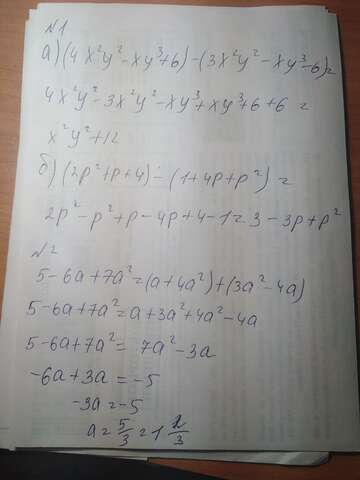 №1
а) (4x²y² - xy³ + 6) - (3x²y² - xy³ - 6) =
4x²y² - 3x²y² - xy³ + xy³ + 6 + 6 =
x²y² + 12
б) (2p² + p + 4) - (1 + 4p + p²) =
2p² - p² + p - 4p + 4 - 1 = 3 - 3p + p²
№2
5 - 6a + 7a² = (a + 4a²) + (3a² - 4a)
5 - 6a + 7a² = a + 3a² + 4a² - 4a
5 - 6a + 7a² = 7a² - 3a
-6a + 3a = -5
-3a = -5
a = 5/3 = 1 2/3